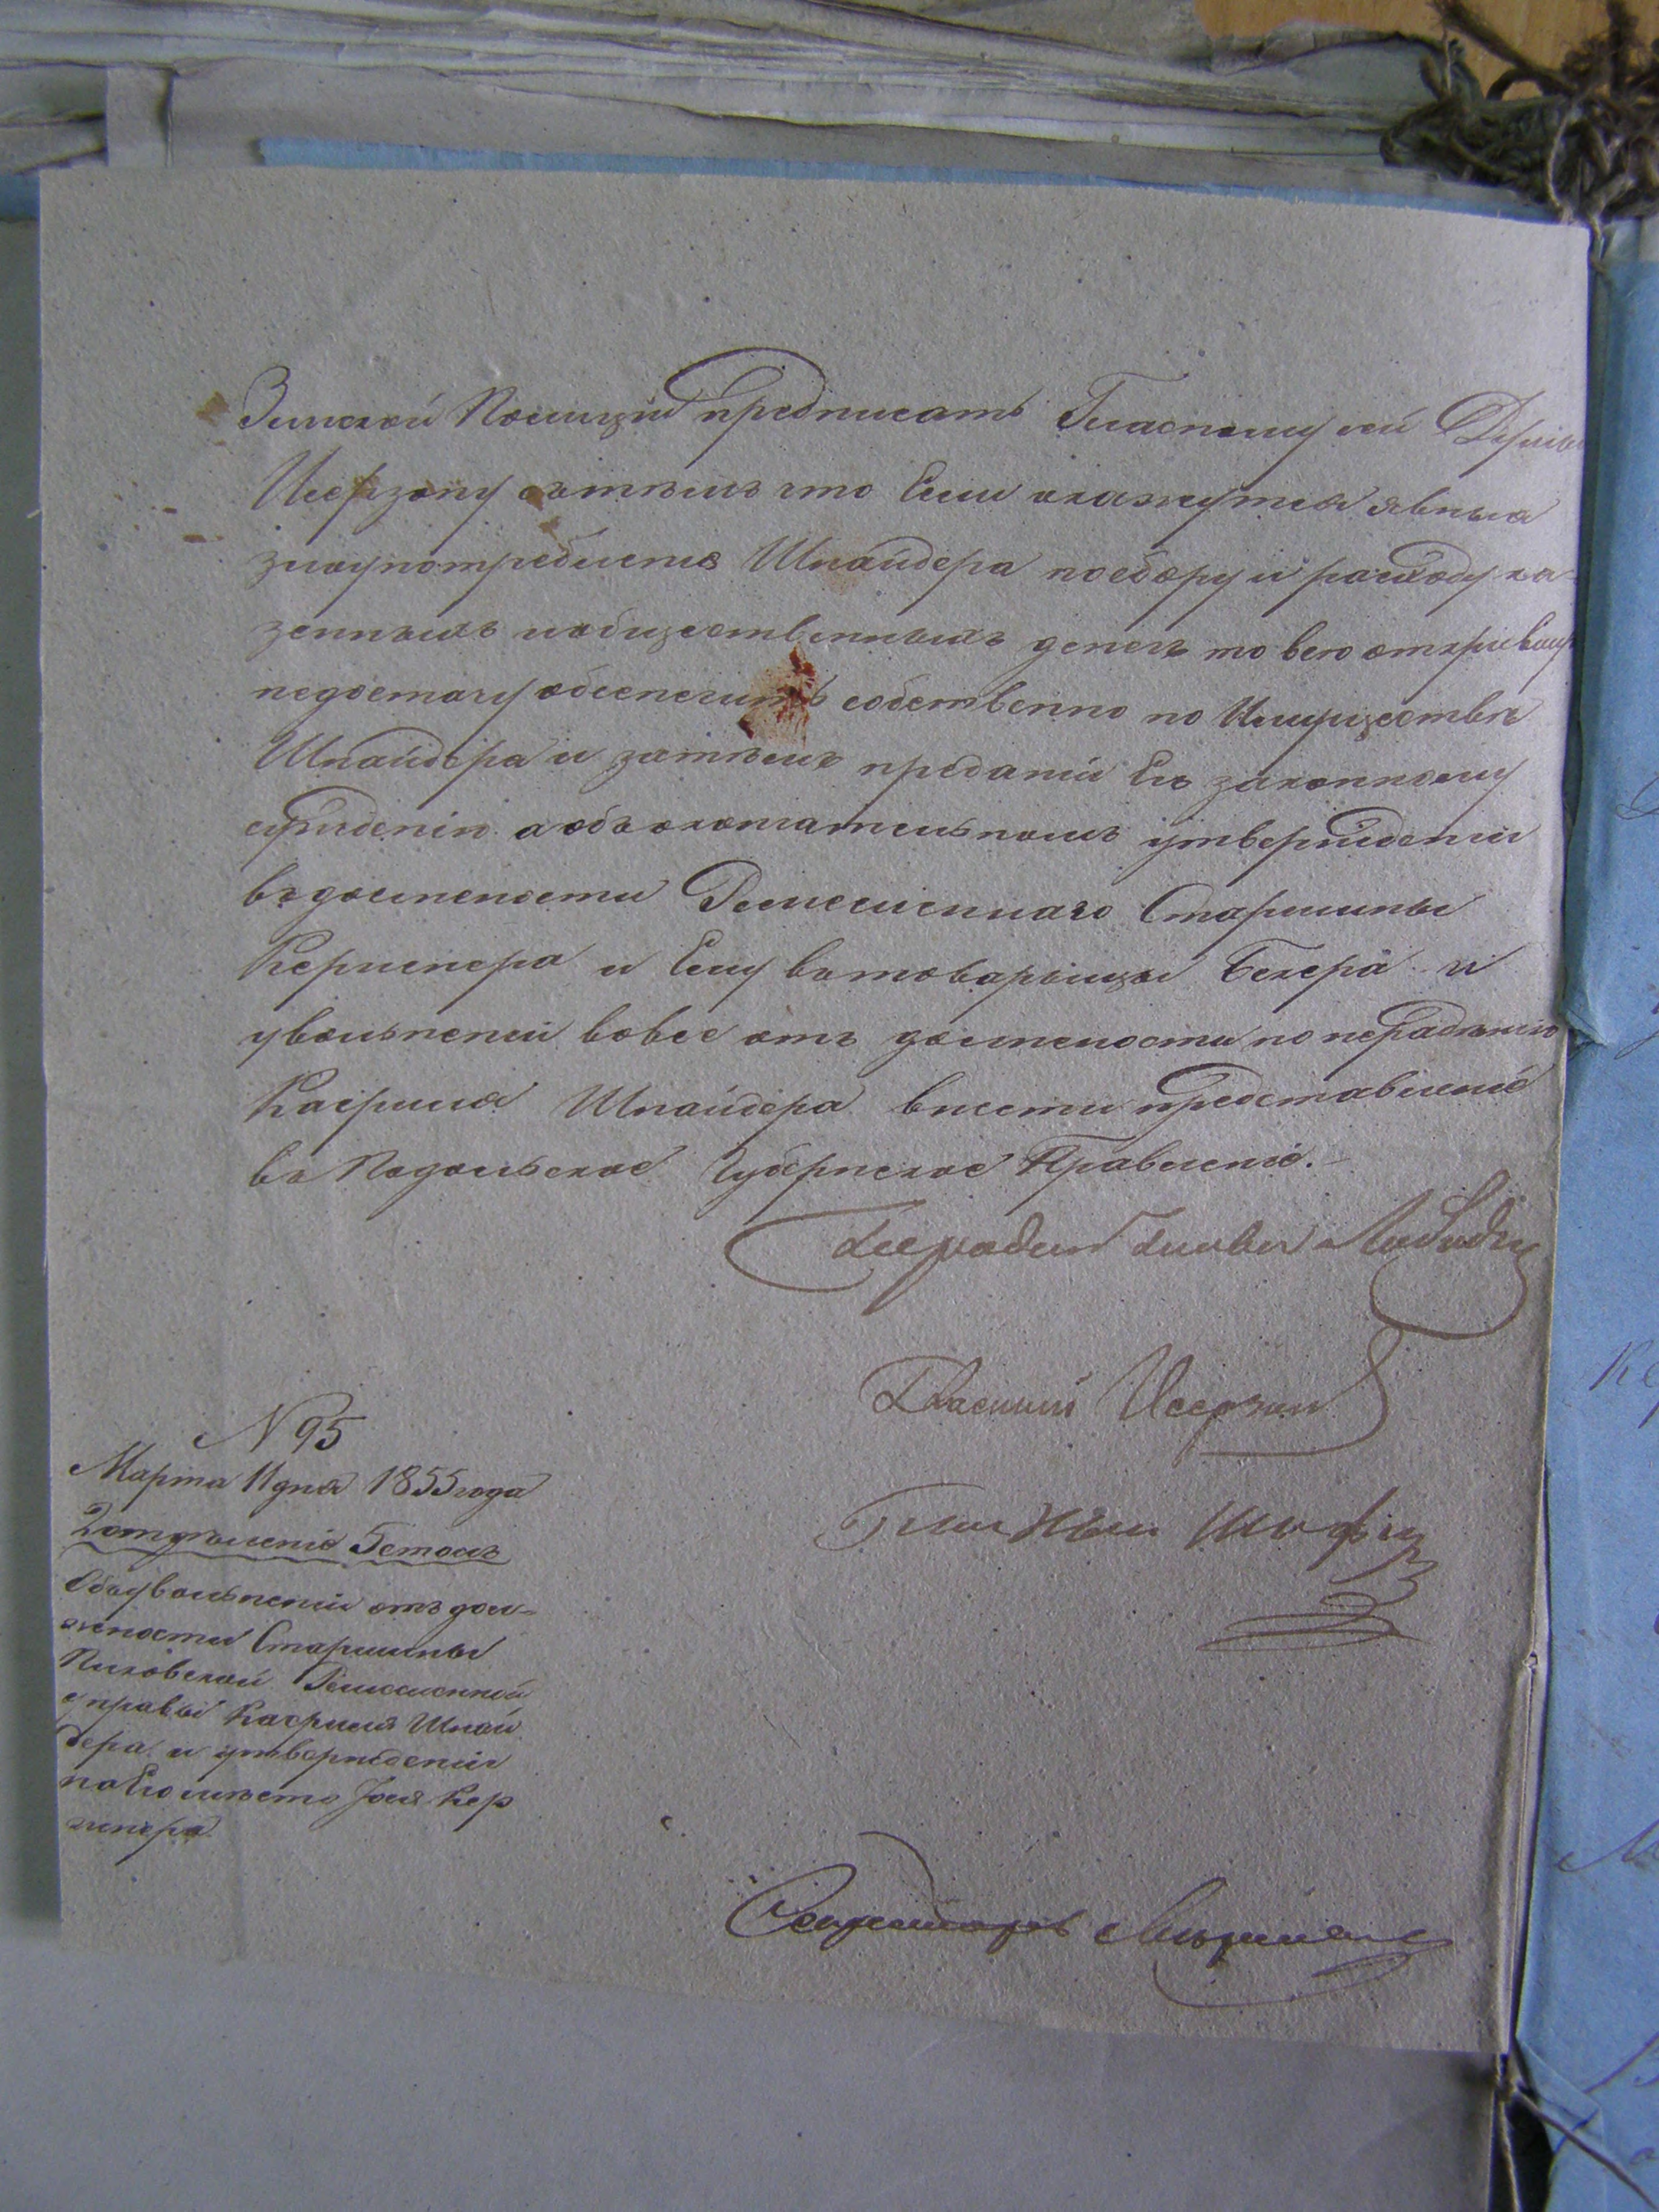 Земской Полиции предписать Гласному сей Думы
Иссерзону съ тѣмъ что Если окажутся явныя
злоупотребленія Шнайдера по сбору и расходу ка-
зенныхъ и общественныхъ денегъ то всю открившуюся
недостачу обспечить собственно по Имуществѣ
Шнайдера и затѣмъ преданіи Его законному
сужденію а объ окончательномъ утвержденіи
въ должности Ремесленнаго Старшины
Кержнера и Ему въ товарищи Бекера и
увольненіи вовсе отъ должности по нерадѣнію
Касриля Шнайдера внести представленіе
въ Подольское Губернское Правленіе.
Голова
Гласный Иссерзон
Гласный
№ 95
Марта 11 дня 1855 года
2 отдѣленіе 5 столъ
Объ увольненіи отъ дол-
жности Старшины
Пиковской Ремесленной
управы Касриля Шнай
дера и утвержденіи
на Его мѣсто Кер
жнера
Секретарь